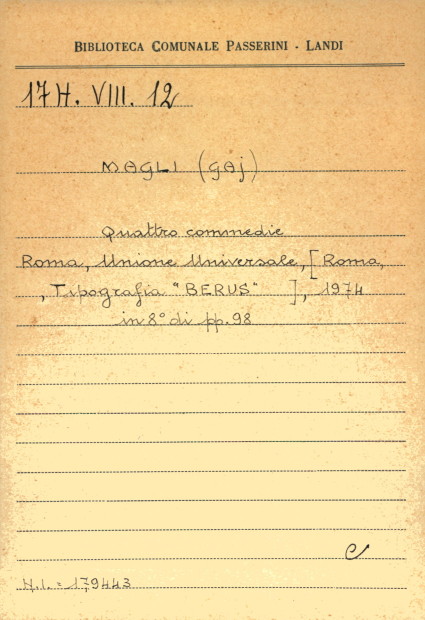 BIBLIOTECA COMUNALE PASSERINI - LANDI
17H. VIII. 12
MAGLI (Gaj)
Quattro commedie
Roma, Unione Universale, [Roma,
, Tipografia "BERUS" ], 1974
in 8° di pp. 98
C
N.I. = 179443